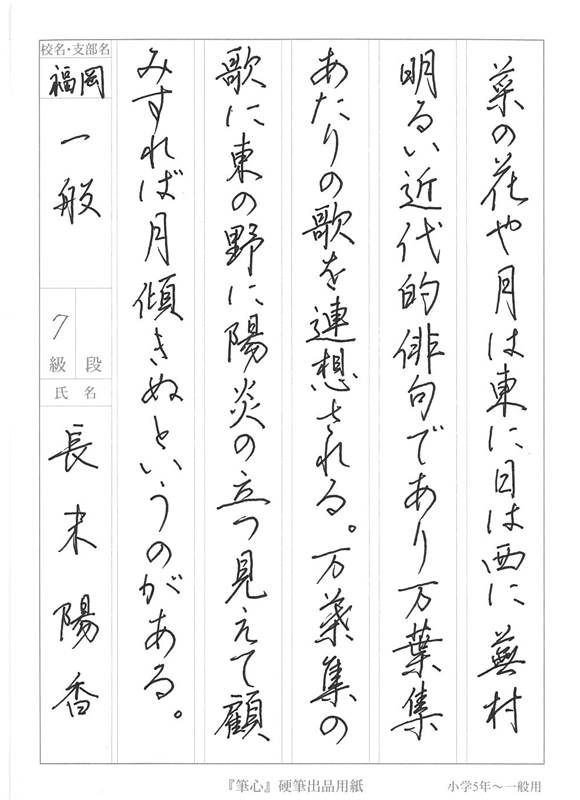 菜の花や月は東に日は西に 蕪村
明るい近代的俳句であり万葉集
あたりの歌を連想される。万葉集の
歌に東の野に陽炎の立つ見えて顧
みすれば月傾きぬというのがある。
校名・支部名
福岡
一般
7
級 段
氏 名
長末陽香
『筆心』硬筆出品用紙
小学5年〜一般用